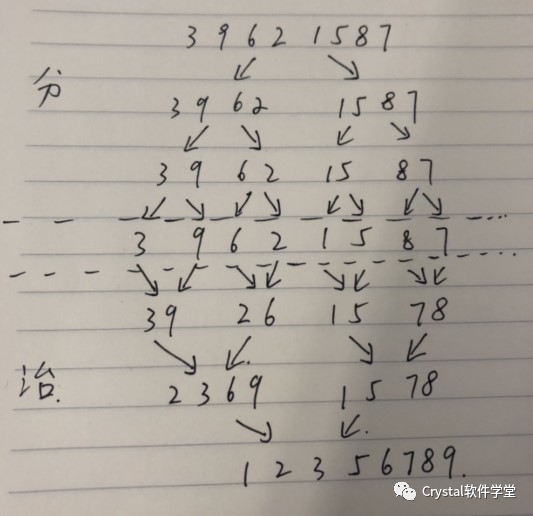 3 9 6 2 1 5 8 7
分
3 9 6 2 1 5 8 7
3 9 6 2 1 5 8 7
3 9 6 2 1 5 8 7
3 9 2 6 1 5 7 8
治.
2 3 6 9 1 5 7 8
1 2 3 5 6 7 8 9.
Crystal软件学堂